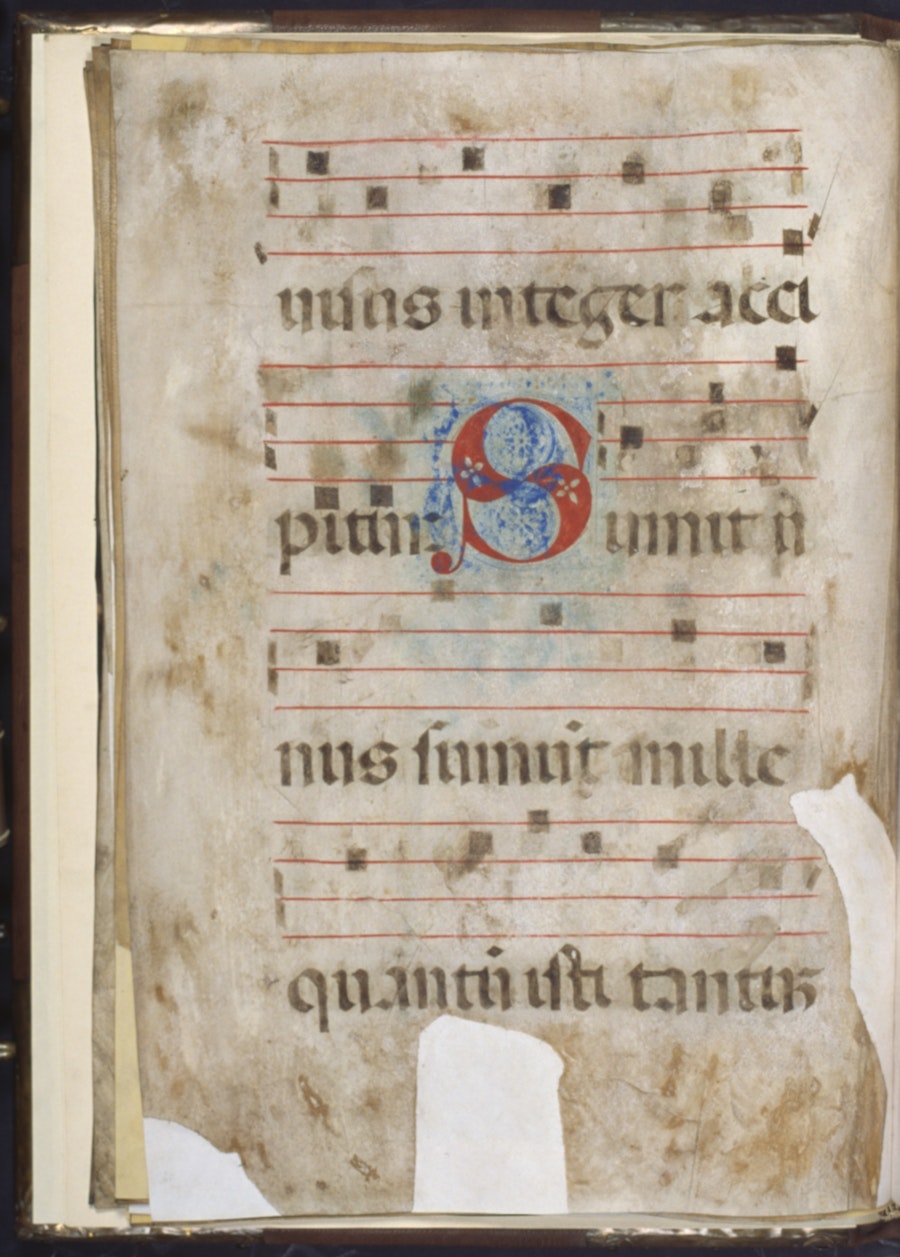 uisus integer acci
pitur Sumit u
nus sumūt mille
quantū isti tantus